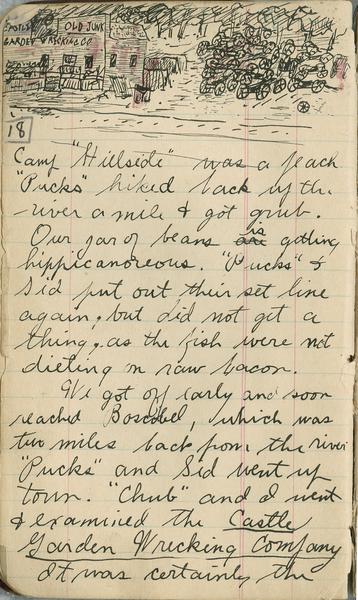 CASTLE
GARDEN WRECKING CO
OLD JUNK
18
Camp "Hillside" was a peach
"Pucks" hiked back up the
river a mile & got grub.
Our jar of beans are is getting
hippicanoreous. "Pucks" &
Sid put out their set line
again, but did not get a
thing, as the fish were not
dieting on raw bacon.
We got off early and soon
reached Boscobel, which was
two miles back from the river
"Pucks" and Sid went up
town. "Chub" and I went
& examined the Castle
Garden Wrecking Company
It was certainly the